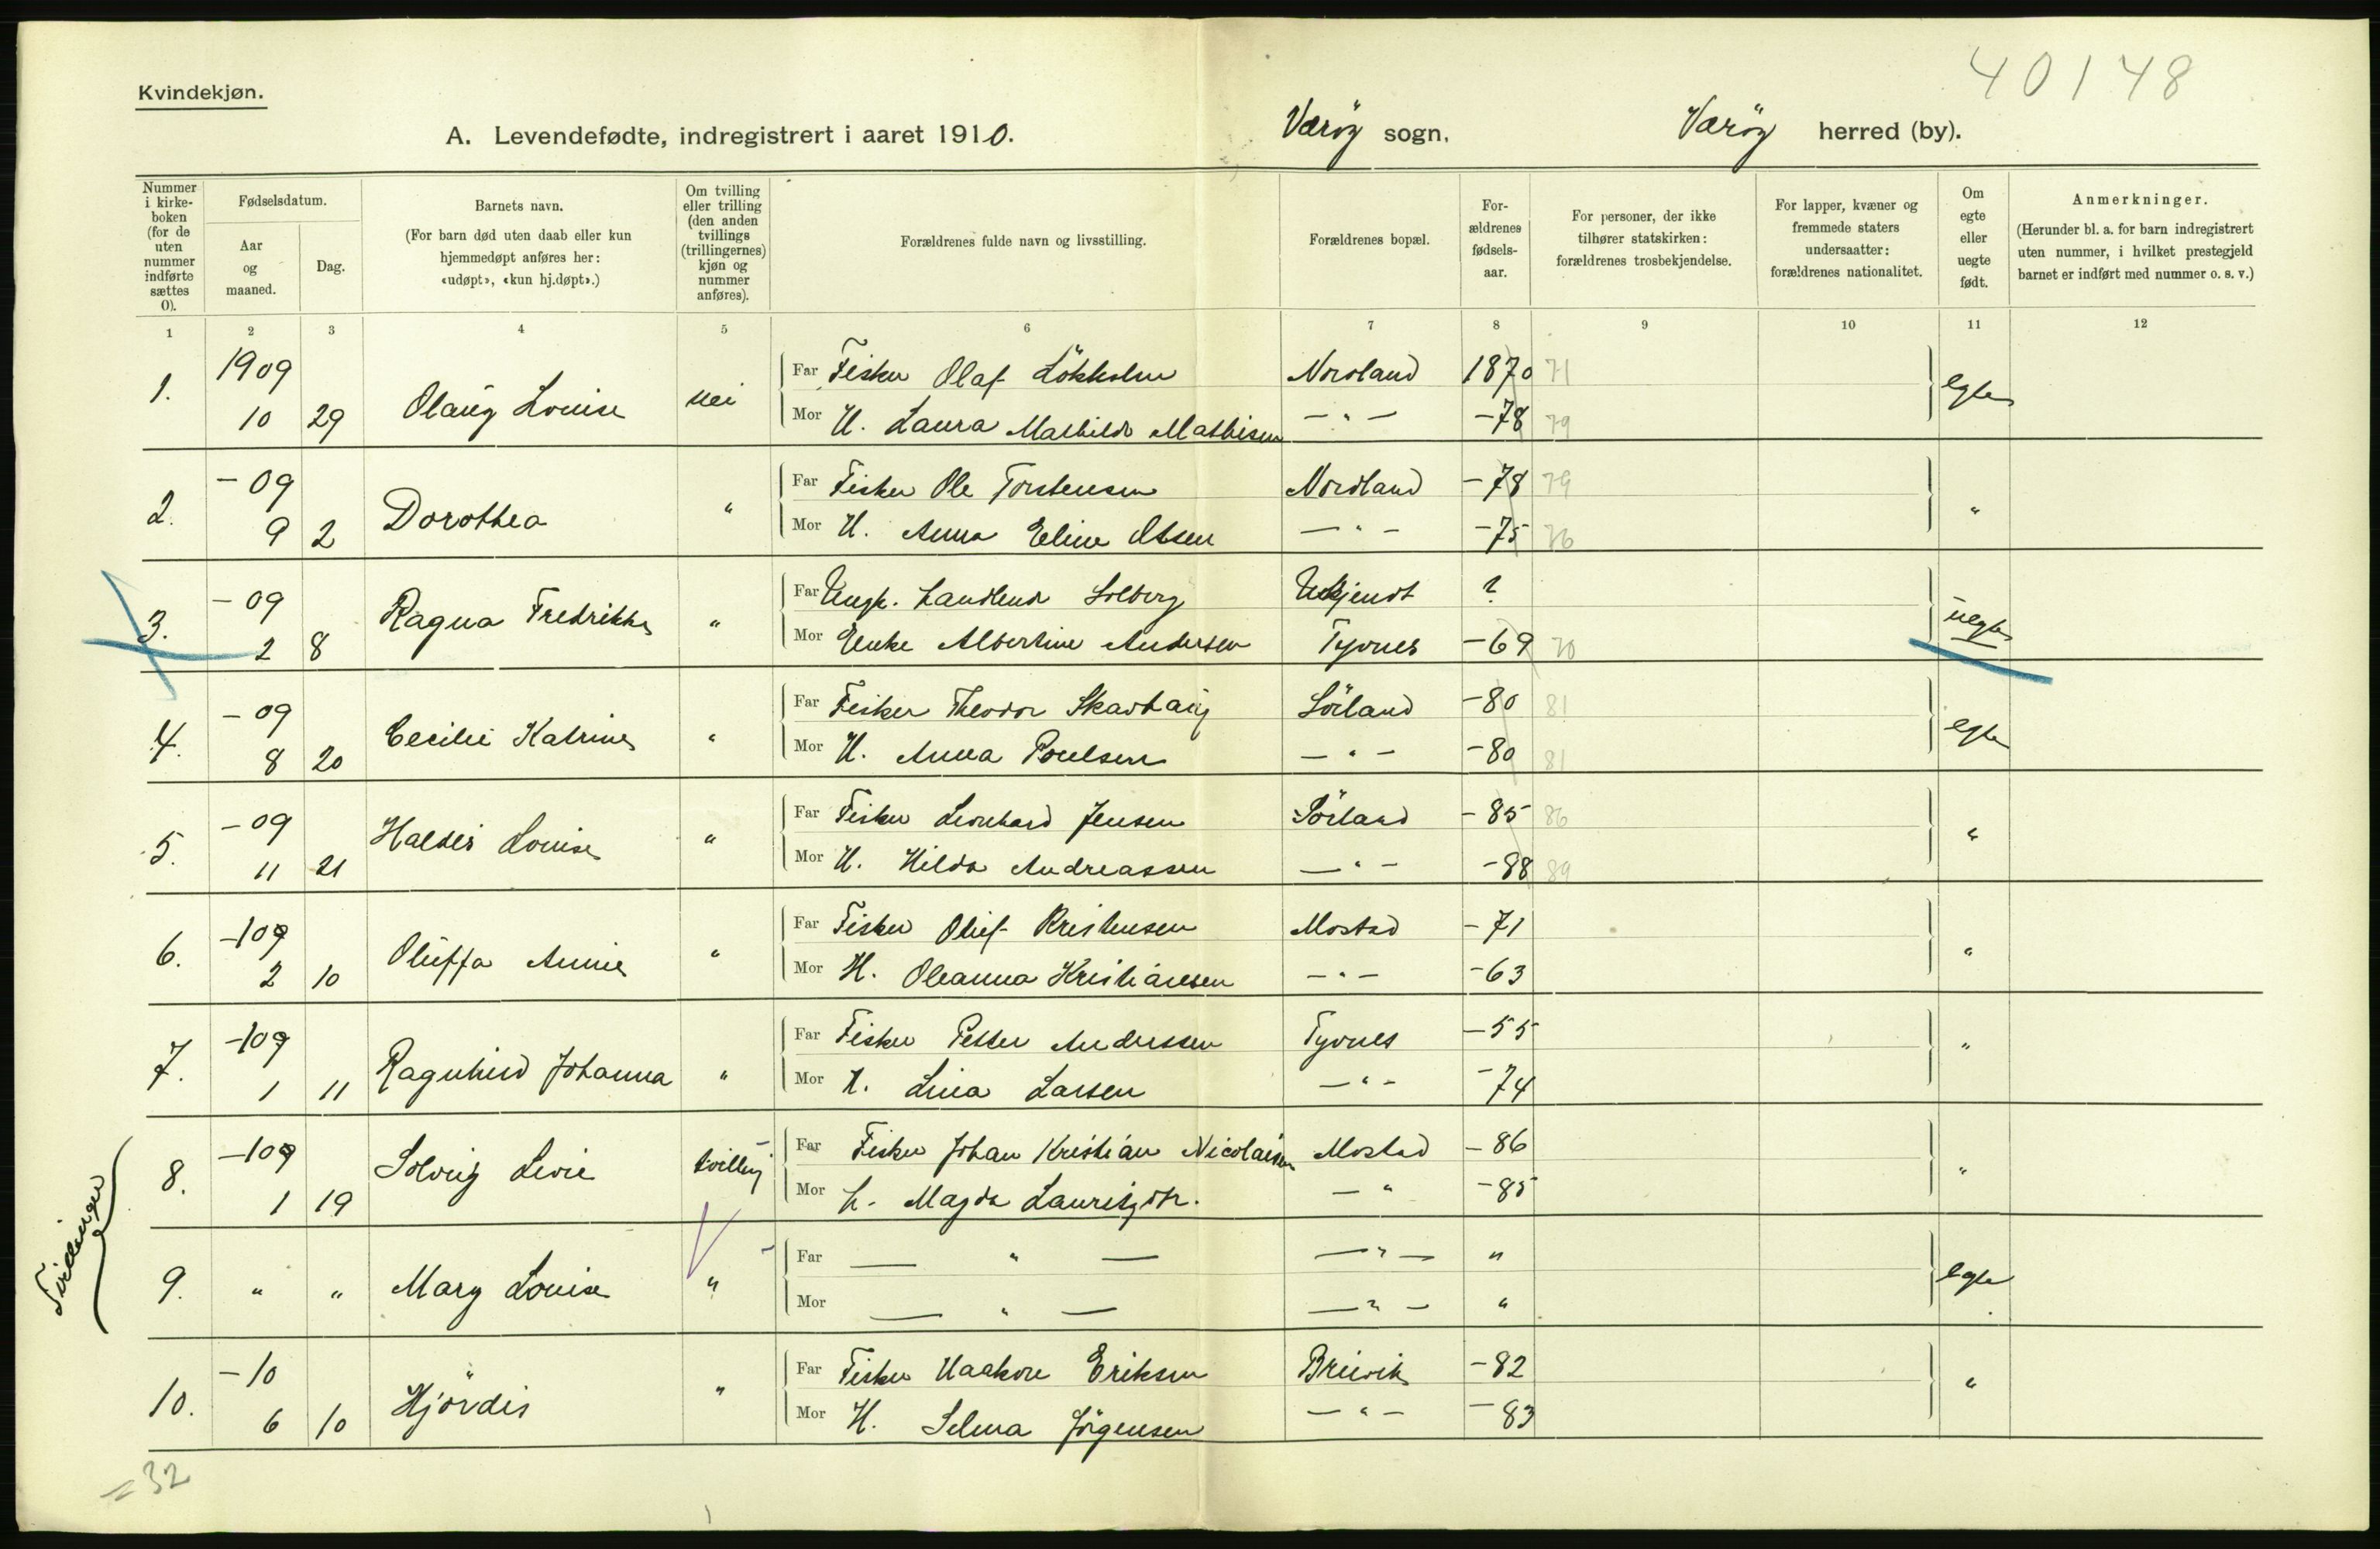 40148
Kvindekjøn.
A. Levendefødte, indregistrert i aaret 1910. Værøy sogn, Værøy herred (by).
Nummer i kirke-boken (for de uten nummer indførte sættes 0).
Fødselsdatum.
Aar og maaned.
Dag.
Barnets navn.
(For barn død uten daab eller kun hjemmedøpt anføres her: «udøpt», «kun hj.døpt».)
Om tvilling eller trilling (den anden tvillings (trillingernes) kjøn og nummer anføres).
Forældrenes fulde navn og livsstilling.
Forældrenes bopæl.
For-ældrenes fødsels-aar.
For personer, der ikke tilhører statskirken: forældrenes trosbekjendelse.
For lapper, kvæner og fremmede staters undersaatter: forældrenes nationalitet.
Om egte eller uegte født.
Anmerkninger.
(Herunder bl. a. for barn indregistrert uten nummer, i hvilket prestegjeld barnet er indført med nummer o. s. v.)
1 2 3 4 5 6 7 8 9 10 11 12
1. 1909 10 29 Olaug Louise nei
Far Fisker Olaf Lökholm Nordland 1870 71 egte
Mor H. Laura Mathilde Mathisen — " — -78 79
2. -09 9 2 Dorothea "
Far Fisker Ole Torstensen Nordland -78 79 "
Mor H. Anna Eline Olsen — " — -75 76
3. -09 2 8 Ragna Fredrikke "
Far Ungk. Solberg Ukjendt ? uegte
Mor Enke Albertine Andersen Tyvnes -69 70
4. -09 8 20 Cecilie Katrine "
Far Fisker Theodor Skarhaug Sörland -80 81 egte
Mor H. Anna Poulsen — " — -80 81
5. -09 11 21 Haldis Louise "
Far Fisker Leonhard Jensen Sörland -85 86 "
Mor H. Hilda Andreassen — " — -88 89
6. -109 2 10 Oluffa Annie "
Far Fisker Oluf Kristensen Mostad -71 "
Mor H. Oleanna Kristiansen — " — -63
7. -109 1 11 Ragnhild Johanna "
Far Fisker Petter Anderssen Tyvnes -55 "
Mor H. Lina Larsen — " — -74
Tvillinger
8. -109 1 19 Solveig Livie tvilling
Far Fisker Johan Kristian Nicolaisen Mostad -86 "
Mor H. Magda Lauritzdtr. — " -85
9. " " Mary Louise "
Far — " — — " — " egte
Mor — " — — " — "
10. -10 6 10 Hjördis "
Far Fisker Haakon Eriksen Breivik -82 "
Mor H. Selma Jörgensen — " — -83
= 32